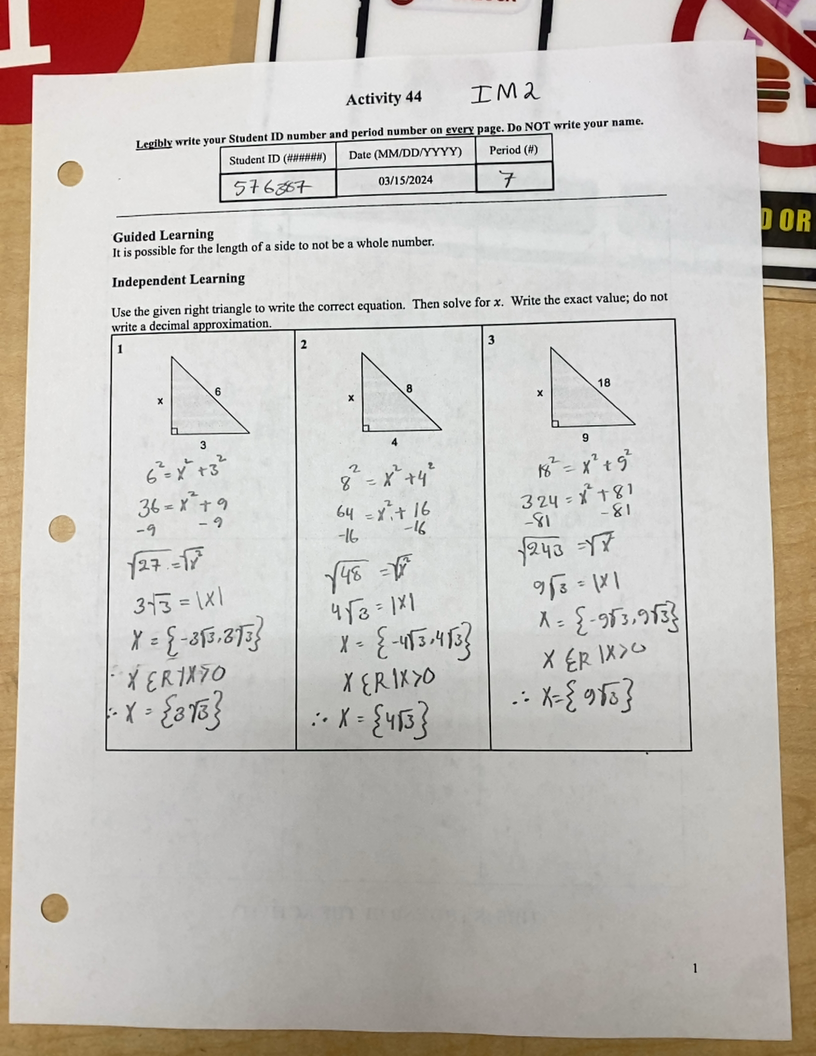 Activity 44 IM2
Legibly write your Student ID number and period number on every page. Do NOT write your name.
Student ID (######) Date (MM/DD/YYYY) Period (#)
576387 03/15/2024 7
Guided Learning
It is possible for the length of a side to not be a whole number.
Independent Learning
Use the given right triangle to write the correct equation. Then solve for x. Write the exact value; do not
write a decimal approximation.
1
x
6
3
6² = x² + 3²
36 = x² + 9
-9 -9
√27 = √x²
3√3 = |x|
x = {-3√3, 3√3}
x ∈ R | x > 0
∴ x = {3√3}
2
x
8
4
8² = x² + 4²
64 = x² + 16
-16 -16
√48 = √x²
4√3 = |x|
x = {-4√3, 4√3}
x ∈ R | x > 0
∴ x = {4√3}
3
x
18
9
18² = x² + 9²
324 = x² + 81
-81 -81
√243 = √x²
9√3 = |x|
x = {-9√3, 9√3}
x ∈ R | x > 0
∴ x = {9√3}
1
D OR